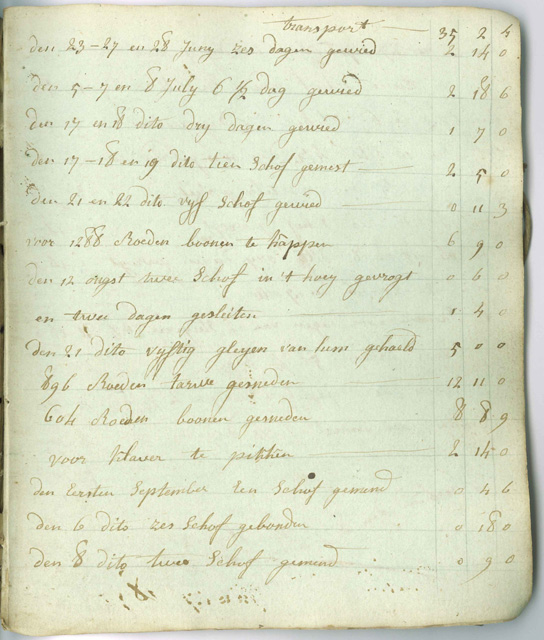 transport 35 2 4
den 23-27 en 28 Juny zes dagen gewied 2 14 0
den 5-7 en 8 July 6 1/2 dag gewied 2 18 6
den 17 en 18 dito dry dagen gewied 1 7 0
den 17-18 en 19 dito tien Schof gemest 2 5 0
den 21 en 22 dito vyf Schof gewied 0 11 3
voor 1288 Roeden boonen te happen 6 9 0
den 12 ougst twee Schof in 't hoey gevrogt 0 6 0
en twee dagen gesleten 1 4 0
den 21 dito vyftig gleyen van hem gehaeld 5 0 0
896 Roeden tarwe gesneden 12 11 0
604 Roeden boonen gesneden 8 8 9
voor klaver te pikken 2 14 0
den Eersten September Een Schof gemend 0 4 6
den 6 dito zes Schof gebonden 0 18 0
den 8 dito twee Schof gemend 0 9 0